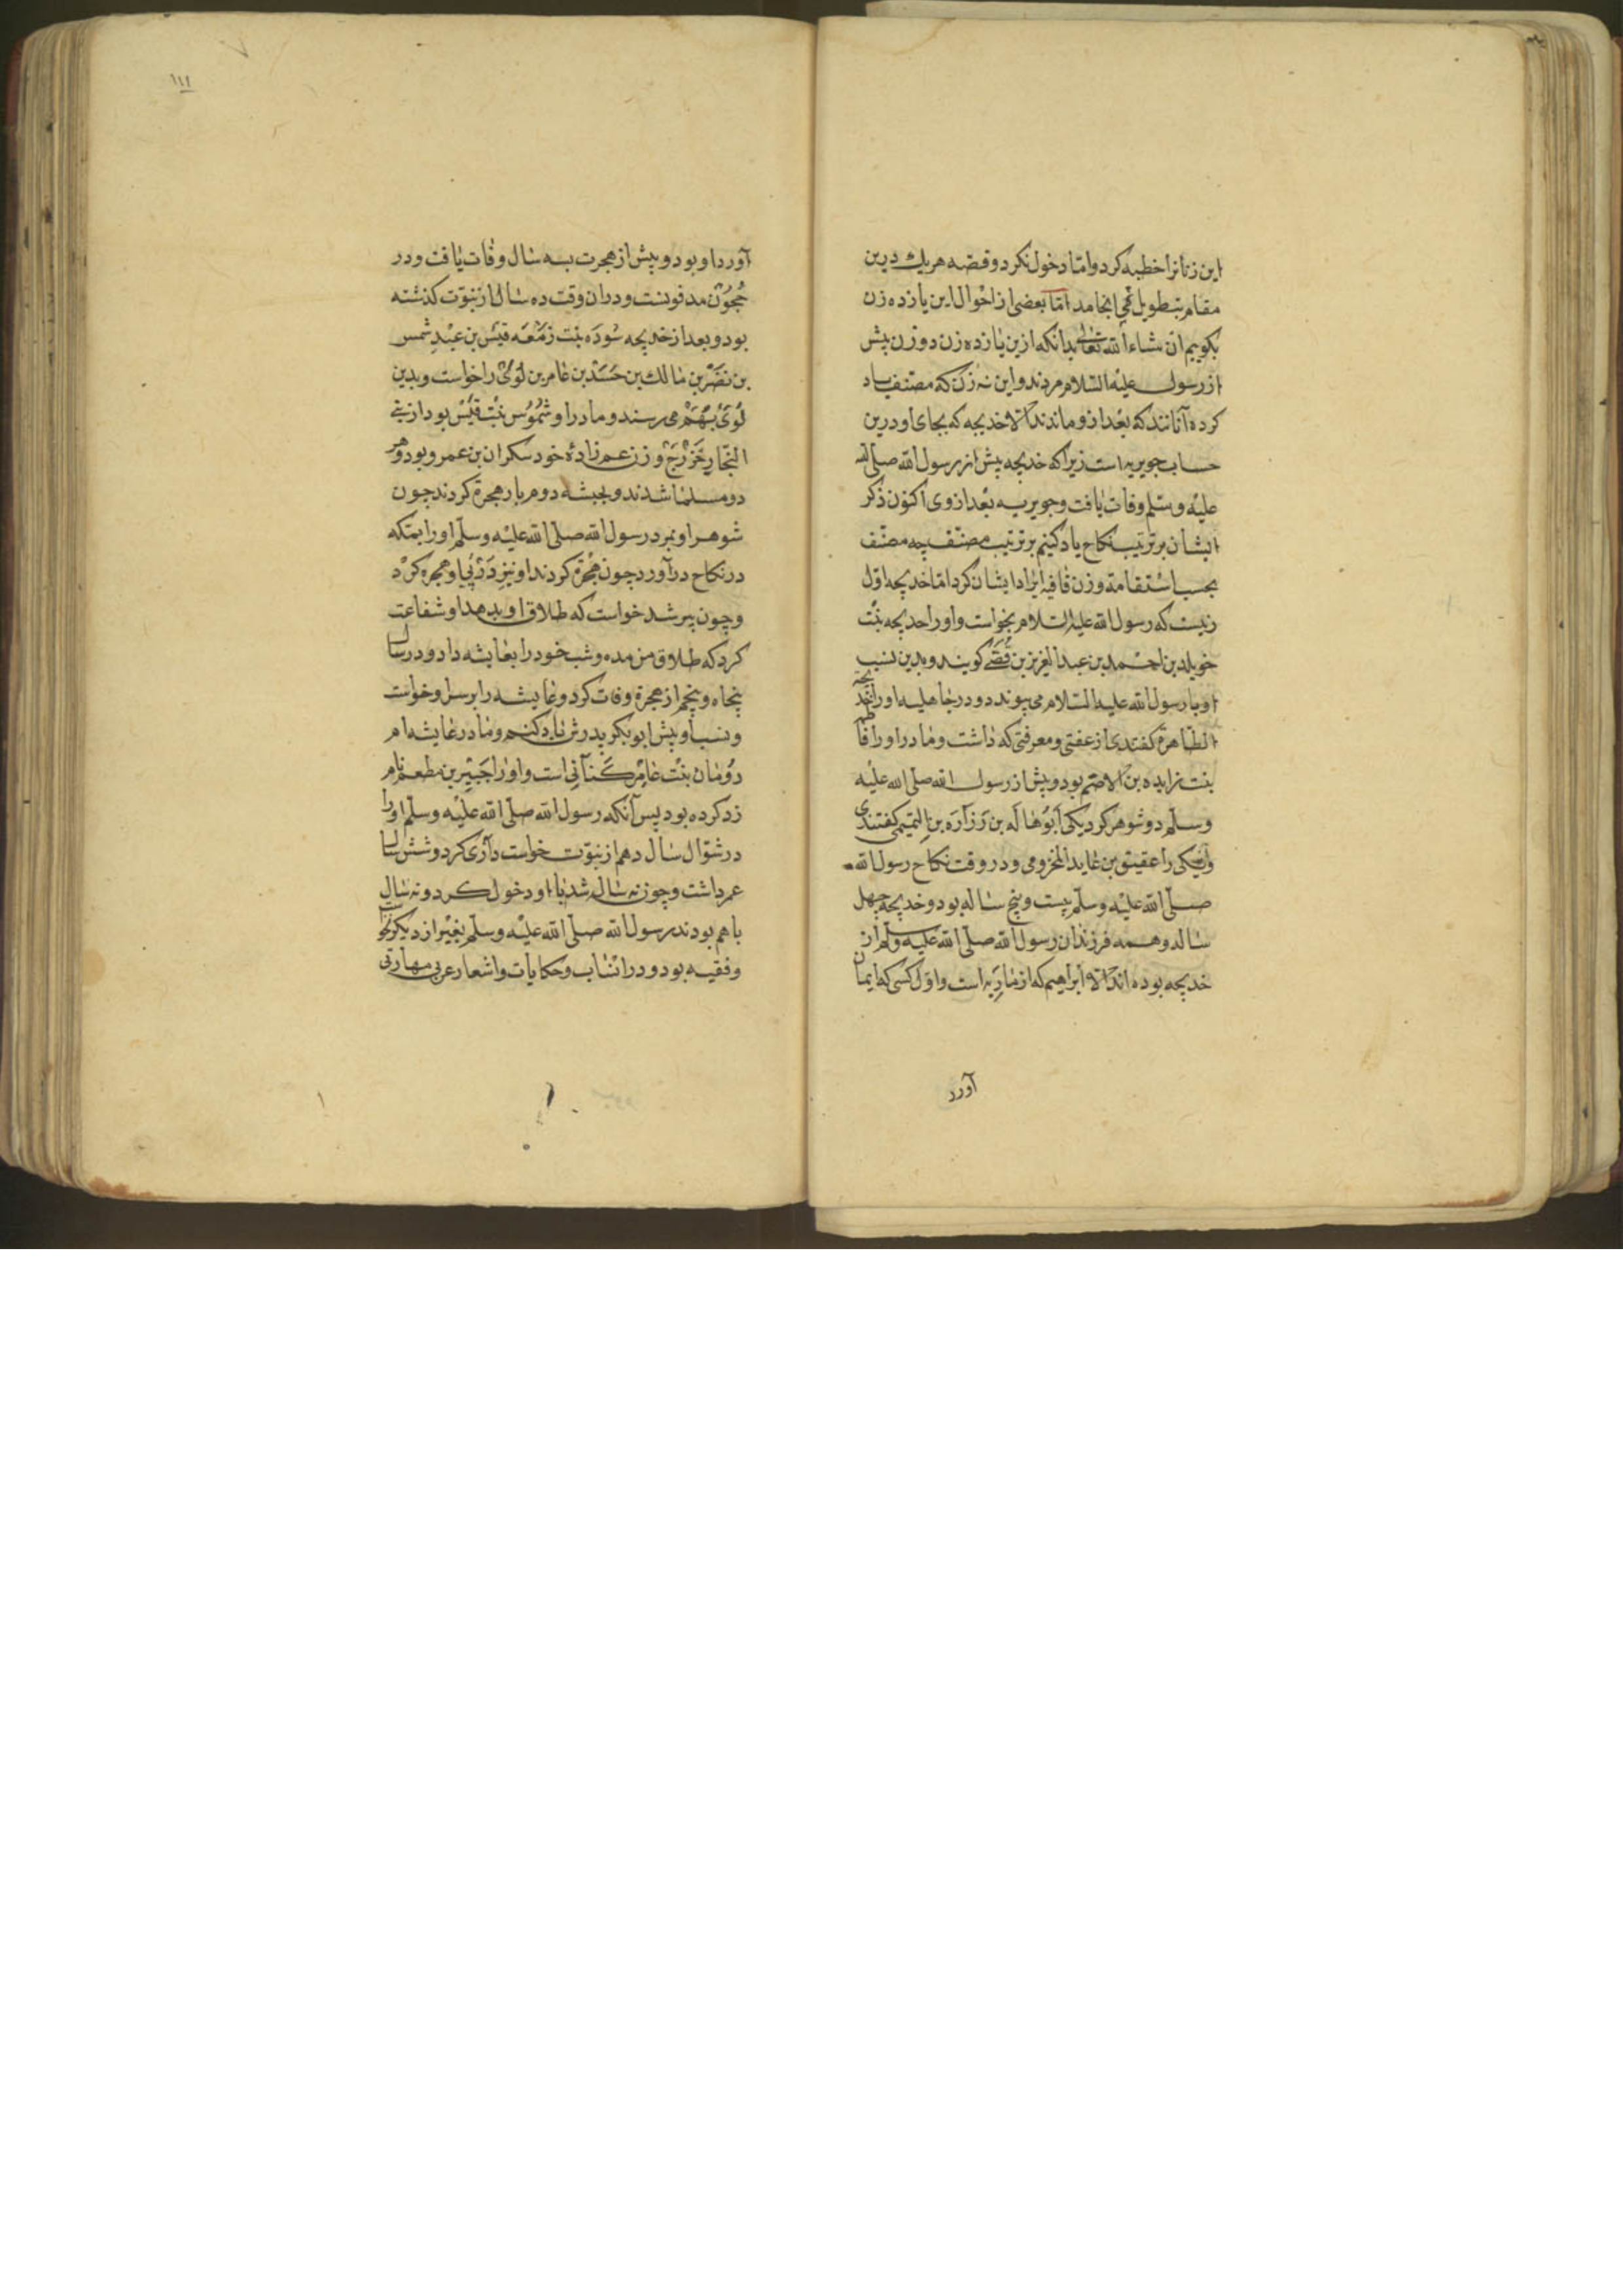 این زنانرا خطبه کرد و امّا دخول نکرد و قصّه هر یك درین
مقام بتطویل می انجامد امّا بعضی از احوال این یازده زن
بکوییم ان شاء الله تعالی بدانکه ازین یازده زن دو زن پیش
از رسول علیه السّلام مردند و این نه زن که مصنّف یاد
کرده آنانند که بعد از و ماندند الا خدیجه که بجای او درین
حساب جویریه است زیرا که خدیجه پیش از رسول الله صلی الله
علیه وسلّم وفات یافت و جویریه بعد از وی اکنون ذکر
ایشان بر ترتیب نکاح یاد کنیم بر ترتیب مصنّف چه مصنّف
بحسب استقامة وزن قافیه ایراد ایشان کرد امّا خدیجه اوّل
زنیست که رسول الله علیه السلام بخواست و او را خدیجه بنت
خویلد بن احمد بن عبد العزیز بن قصّی کویند و بدین نسب
او با رسول الله علیه السّلام می پیوندد و در جاهلیه او را خدیجة
الطّاهرة کفتندی از عفّتی و معرفتی که داشت و مادر او را فاطمه
بنت زایده بن الاصّم بود و پیش از رسول الله صلّی الله علیه
وسلّم دو شوهر کرد یکی ابو هاله بن زراره بن التمیمی کفتندی
و را عقیتق بن عاید المخزومی و در وقت نکاح رسول الله
صلّی الله علیه وسلّم بیست و پنج ساله بود و خدیجه چهل
ساله و همه فرزندان رسول الله صلّی الله علیه وسلّم از
خدیجه بوده اند الا ابراهیم که از ماریه است و اوّل کسی که ایمان
آورد
١١١
آورد او بود و پیش از هجرت بسه سال وفات یافت و در
حجون مدفونست و دران وقت ده سال از نبوّت کذشته
بود و بعد از خدیجه سوده بنت زمعه قیس بن عبد شمس
بن نضر بن مالك بن حسد بن عامر بن لوئ را خواست و بدین
لوئ بهم می رسند و مادر او شموس بنت قیس بود از بنی
النجّار خزرج و زن عم زادهٔ خود سکران بن عمرو بود و هر
دو مسلمان شدند و بحبشه دوم بار هجرة کردند چون
شوهر او بمرد رسول الله صلّی الله علیه وسلّم او را بمکه
در نکاح در آورد چون هجرة کردند او نیز در پی او هجره کرد
و چون پیر شد خواست که طلاق او بدهد او شفاعت
کرد که طلاق من مده و شب خود را بعایشه داد و در سال
پنجاه و پنجم از هجرة وفات کرد و عایشه را بر سر او خواست
و نسب او پیش ابو بکر پدرش یاد کنیم و مادر عایشه ام
رومان بنت عامر کنآنی است و او را جبیر بن مطعم نام
زد کرده بود پس آنکه رسول الله صلّی الله علیه وسلّم او را
در شوّال سال دهم از نبوّت خواست داری کرد و شش سال
عمر داشت و چون نه سال شد با او دخول کرد و نه سال
با هم بودند رسول الله صلّی الله علیه وسلّم بغیر از دیکر نخواست
و فقیه بود و در انساب و حکایات و اشعار عرب مهارتی